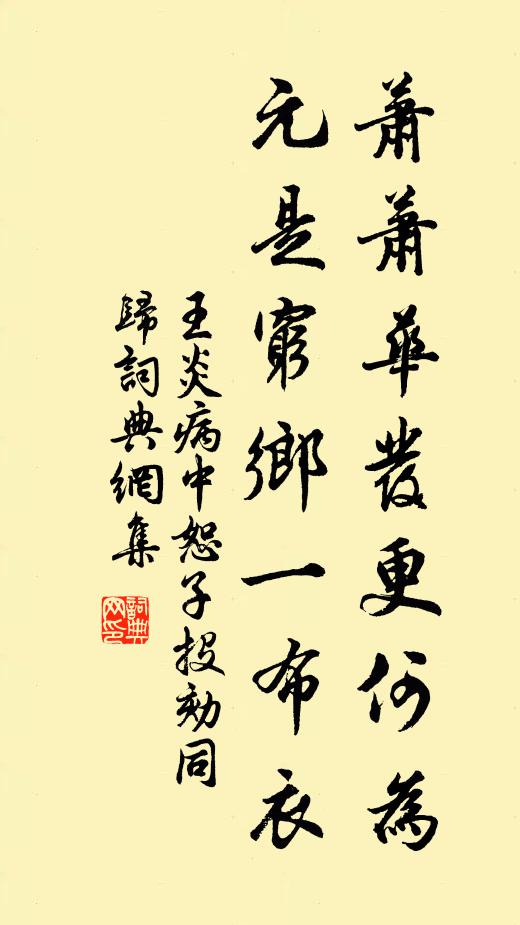 蕭蕭華髮更何為
元是窮鄉一布衣
王炎病中恕子投劾同
歸詞典網集
詞典网印